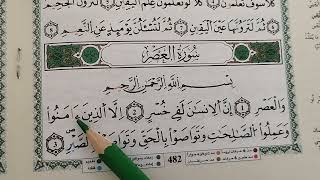 كلا سوف تعلمون كلا لو تعلمون علم اليقين لترون الجحيم
ثُمَّ لَتَرَوُنَّهَا عَيْنَ ٱلْيَقِينِ ٧ ثُمَّ لَتُسْـَٔلُنَّ يَوْمَئِذٍ عَنِ ٱلنَّعِيمِ ٨
سُورَةُ الْعَصْرِ
بِسْمِ ٱللَّهِ ٱلرَّحْمَٰنِ ٱلرَّحِيمِ
وَٱلْعَصْرِ ١ إِنَّ ٱلْإِنسَٰنَ لَفِى خُسْرٍ ٢ إِلَّا ٱلَّذِينَ ءَامَنُوا۟
وَعَمِلُوا۟ ٱلصَّٰلِحَٰتِ وَتَوَاصَوْا۟ بِٱلْحَقِّ وَتَوَاصَوْا۟ بِٱلصَّبْرِ ٣
482